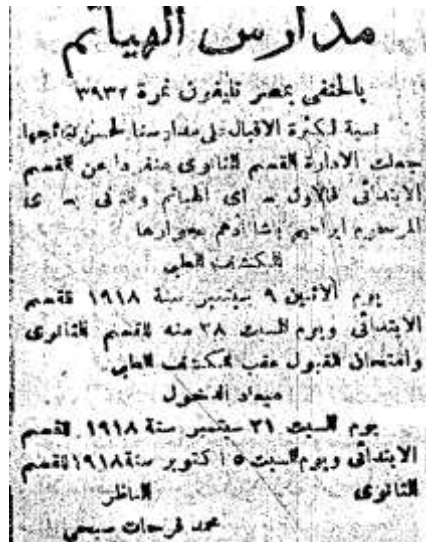 مدارس الهياتم
بالحنفى بمصر تليفون نمرة ٣٩٣٢
نسبة لكثرة الاقبال على مدارسنا لحسن نتائجها
جعلت الادارة القسم الثانوى منفردا عن القسم
الابتدائى فالأول بسراى الهياتم والثانى بسراى
المرحوم ابراهيم باشا أدهم بجوارها
الكشف الطبى
يوم الاثنين ٩ سبتمبر سنة ١٩١٨ للقسم
الابتدائى ويوم السبت ٢٨ منه للقسم الثانوى
وامتحان القبول عقب الكشف الطبى
ميعاد الدخول
يوم السبت ٢١ سبتمبر سنة ١٩١٨ للقسم
الابتدائى ويوم السبت ٥ اكتوبر سنة ١٩١٨ للقسم
الثانوى الناظر
محمد فرحات سبحى